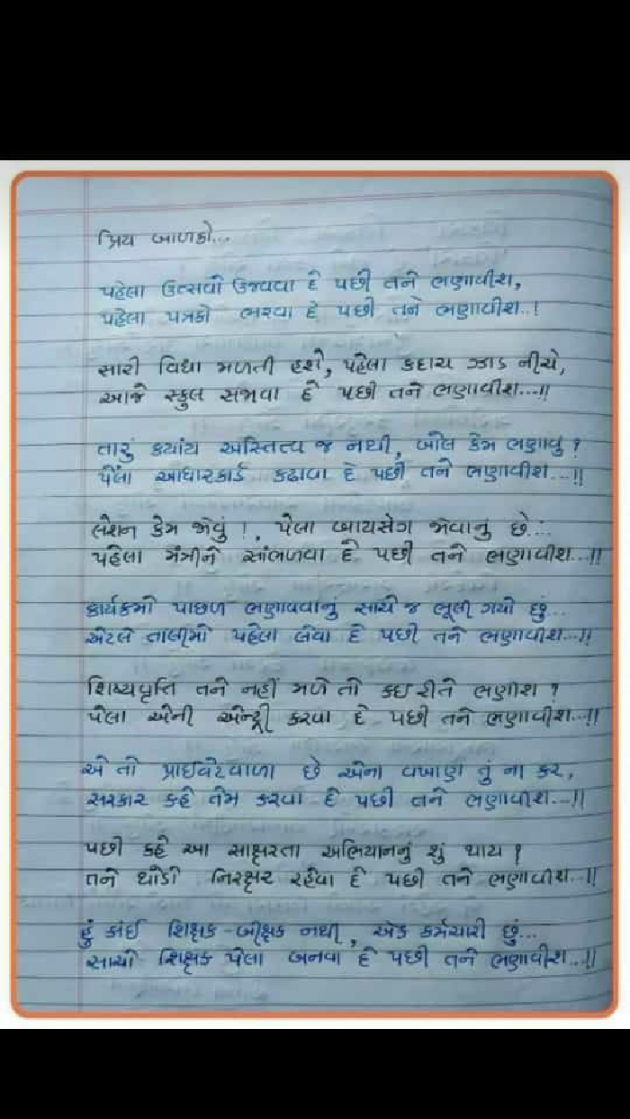 પ્રિય બાળકો...
પહેલા ઉત્સવો ઉજવવા દે પછી તને ભણાવીશ,
પહેલા પત્રકો ભરવા દે પછી તને ભણાવીશ..!
સારી વિદ્યા મળતી હશે, પહેલા કદાચ ઝાડ નીચે,
આજે સ્કુલ સજવા દે પછી તને ભણાવીશ...!!
તારું કયાંય અસ્તિત્વ જ નથી, બોલ કેમ ભણાવું ?
પેલા આધારકાર્ડ કઢાવા દે પછી તને ભણાવીશ...!!
લેશન કેમ જોવું !, પેલા બાયસેગ જોવાનું છે...
પહેલા મંત્રીને સાંભળવા દે પછી તને ભણાવીશ...!!
કાર્યક્રમો પાછળ ભણાવવાનું સાચે જ ભૂલી ગયો છું...
એટલે તાલીમો પહેલા લેવા દે પછી તને ભણાવીશ...!!
શિષ્યવૃત્તિ તને નહીં મળે તો કઇ રીતે ભણીશ ?
પેલા એની એન્ટ્રી કરવા દે પછી તને ભણાવીશ...!!
એ તો પ્રાઈવેટવાળા છે એના વખાણ તું ના કર,
સરકાર કહે તેમ કરવા દે પછી તને ભણાવીશ...!!
પછી કહે આ સાક્ષરતા અભિયાનનું શું થાય ?
તને થોડો નિરક્ષર રહેવા દે પછી તને ભણાવીશ...!!
હું કાંઈ શિક્ષક-બીક્ષક નથી, એક કર્મચારી છું...
સાચો શિક્ષક પેલા બનવા દે પછી તને ભણાવીશ...!!